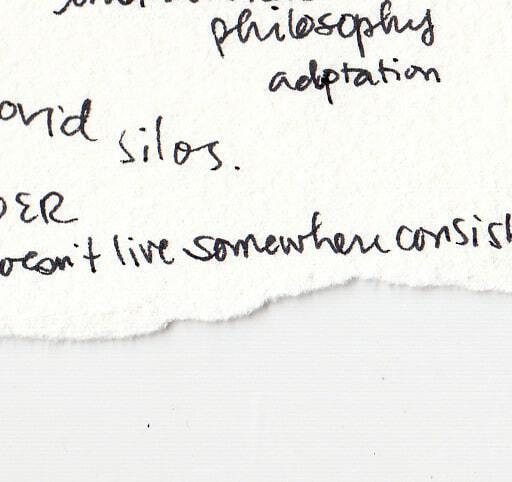 philosophy
adptation
ovid silos.
DER
oesn't live somewhere consist